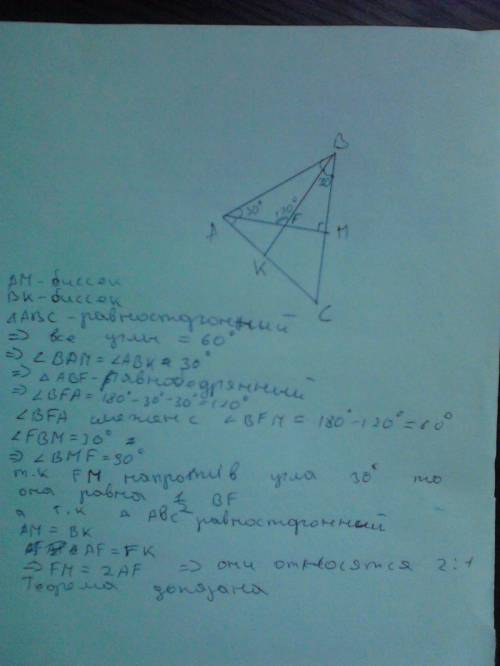 B
30°
30°
120°
F
A
M
K
C
AM - биссек
BK - биссек
△ABC - равносторонний
⇒ все углы = 60°
⇒ ∠BAM = ∠ABK = 30°
⇒ △ABF - равнобедрянний
⇒ ∠BFA = 180° - 30° - 30° = 120°
∠BFA смежен с ∠BFM = 180° - 120° = 60°
∠FBM = 30°
⇒ ∠BMF = 90°
т.к FM напротив угла 30° то
она равна 1/2 BF
а т.к △ABC равносторонний
AM = BK
AF = FK
⇒ FM = 2AF ⇒ они относятся 2:1
Теорема доказана